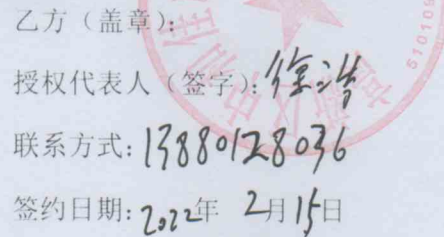 乙方（盖章）：
授权代表人（签字）：徐浩
联系方式：13880128036
签约日期：2022年 2月15日
510109